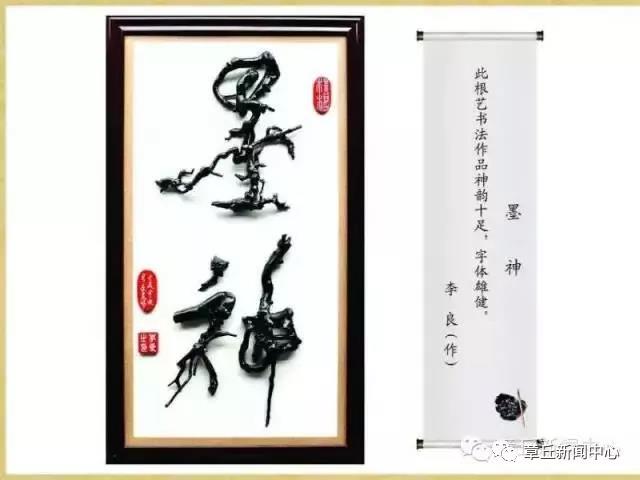 墨神
墨神
此根艺书法作品神韵十足，字体雄健。
李良（作）
章丘新闻中心
章丘新闻中心